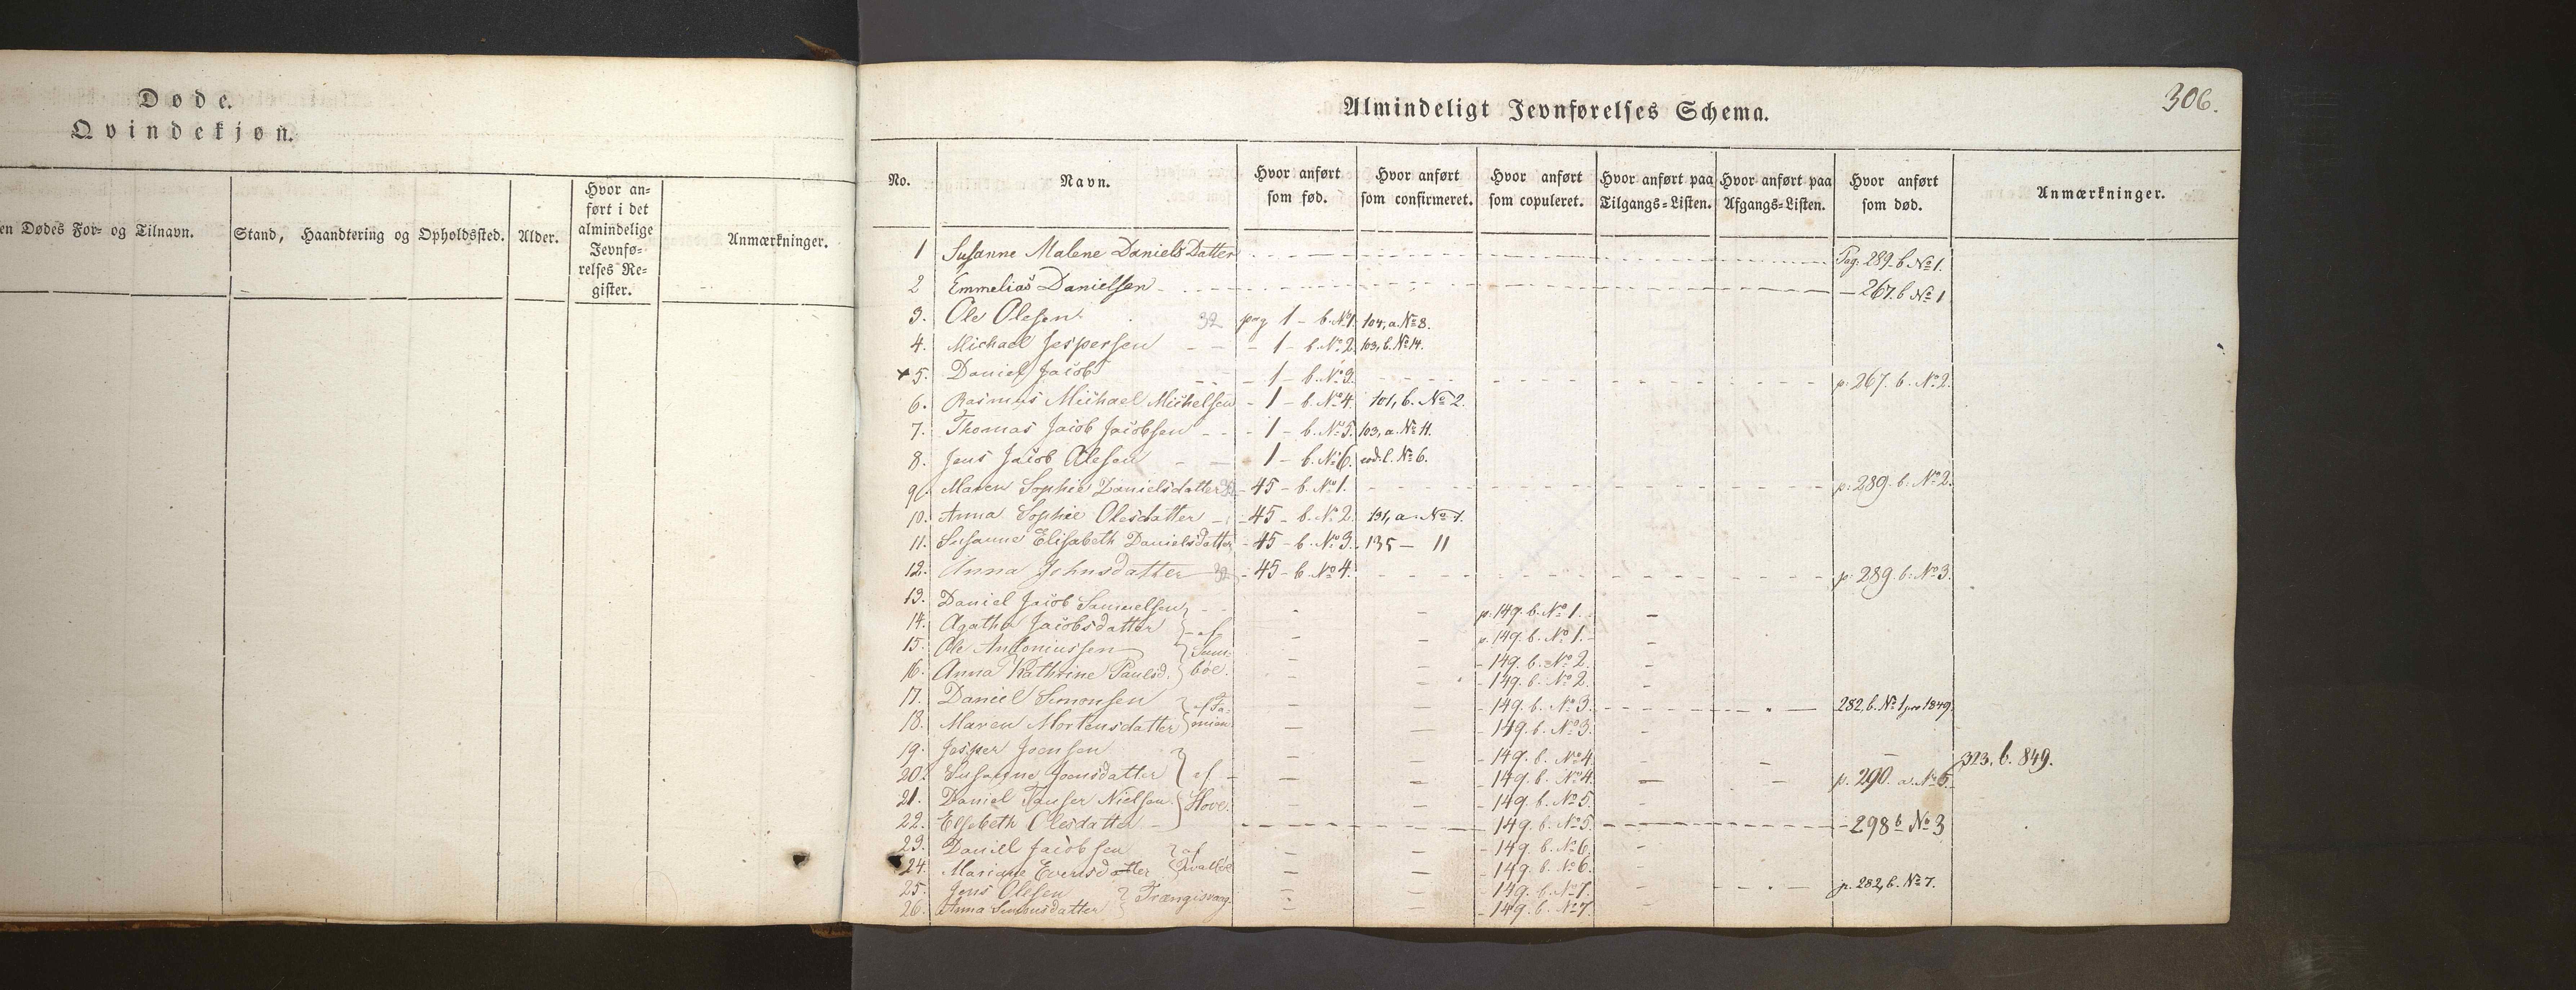 Døde.
Qvindekjøn.
en Dødes For- og Tilnavn.
Stand, Haandtering og Opholdssted.
Alder.
Hvor an-
ført i det
almindelige
Jevnfø-
relses Re-
gister.
Anmærkninger.
306.
Almindeligt Jevnførelses Schema.
No. Navn. Hvor anført som fød. Hvor anført som confirmeret. Hvor anført som copuleret. Hvor anført paa Tilgangs-Listen. Hvor anført paa Afgangs-Listen. Hvor anført som død. Anmærkninger.
1 Susanne Malene Daniels Datter Pag: 289-b No 1.
2 Emmelias Danielsen - 267. b No 1
3. Ole Olesen. 32 pag 1 - b. No 1. 104, a. No 8.
4. Michael Jespersen - 1 - b. No 2. 103, b. No 14.
+ 5. Daniel Jacob - 1 - b. No 3. p. 267. b. No 2.
6. Rasmus Michael Michelsen - 1 - b. No 4. 101, b. No 2.
7. Thomas Jacob Jacobsen - 1 - b. No 5. 103, a. No 11.
8. Jens Jacob Olesen 1 - b. No 6. No 6.
9. Maren Sophie Danielsdatter 32 - 45 - b. No 1. p. 289. b. No 2.
10. Anna Sophie Olesdatter - 45 - b. No 2. 131, a. No 1.
11. Susanne Elisabeth Danielsdatter - 45 - b. No 3. 135 - 11
12. Anna Johnsdatter 32 - 45 - b No 4. p. 289. b. No 3.
13. Daniel Jacob Samuelsen p. 149. b. No 1.
14. Agatha Jacobsdatter af p. 149. b. No 1.
15. Ole Antoniussen Sum- - 149. b. No 2.
16. Anna Kathrine Paulsd. bøe. - 149. b. No 2.
17. Daniel Simonsen af Fa- - 149. b. No 3. 282, b. No 1 pro 1849.
18. Maren Mortensdatter mien - 149. b. No 3.
19. Jesper Joensen - 149. b. No 4. 323. b. 849.
20. Susanne Joensdatter af - 149. b. No 4. p. 290. a. No 5.
21. Daniel Tauser Nielsen Hove. - 149. b. No 5.
22. Elsebeth Olesdatter - 149. b. No 5. - 298 b No 3
23. Daniel Jacobsen af - 149. b. No 6.
24. Mariane Evensdatter Qvalbøe - 149. b. No 6.
25. Jens Olesen Trangisvaag. - 149. b. No 7. p. 282, b. No 7.
26. Anna Simonsdatter - 149. b. No 7.